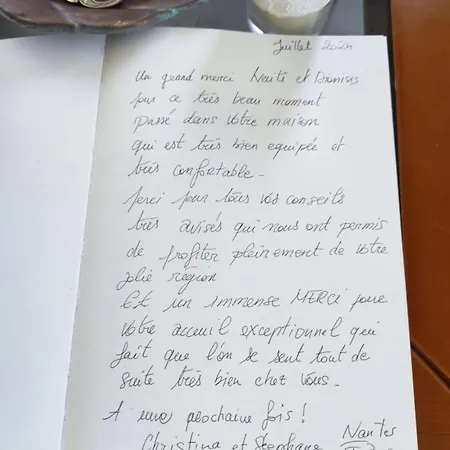 Juillet 2024
Un grand merci et Dionisis
pour ce très beau moment
passé dans votre maison
qui est très bien equipée et
très confortable -
Merci pour tous vos conseils
très avisés qui nous ont permis
de profiter pleinement de votre
jolie région
Et un immense MERCI pour
votre acceuil exceptionnel qui
fait que l'on se sent tout de
suite très bien chez vous -
A une prochaine fois !
Christina et Stephane Nantes